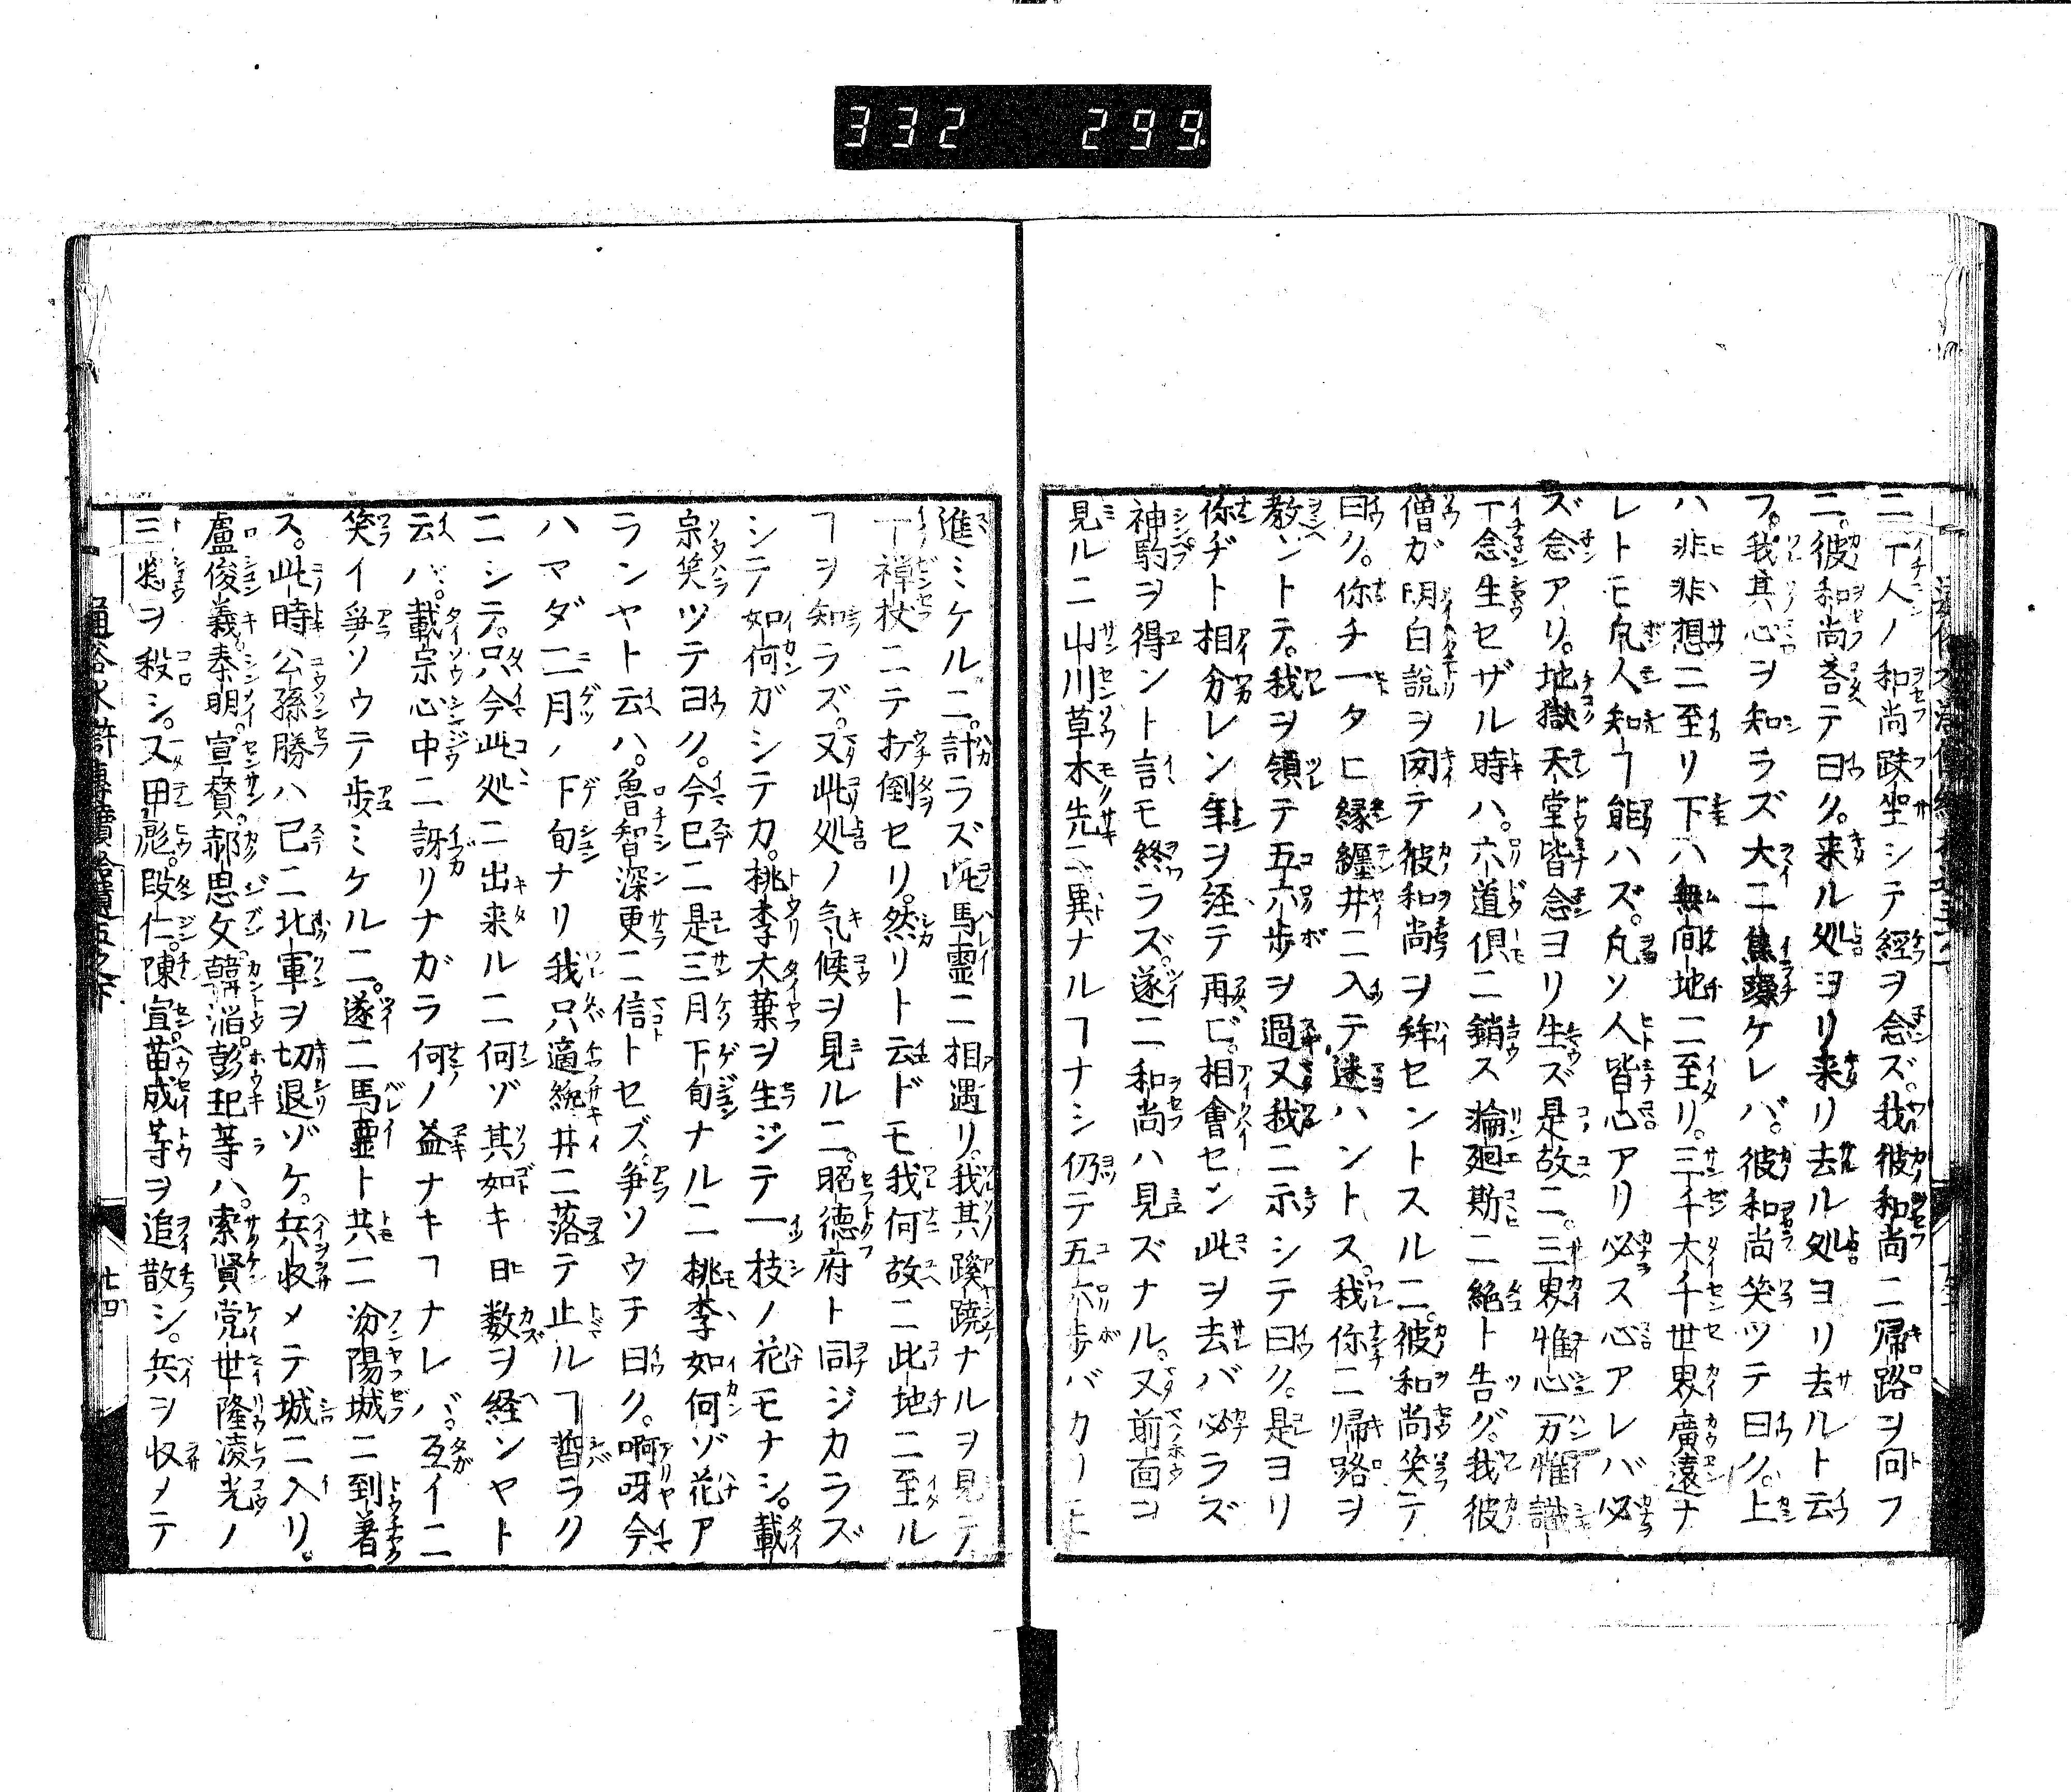 332 299
ニ一人ノ和尚趺坐シテ經ヲ念ズ。我彼和尚ニ帰路ヲ问フ
ニ。彼和尚荅テ曰ク。来ル処ヨリ来リ去ル処ヨリ去ルト云
フ。我其心ヲ知ラズ大ニ焦躁ケレバ。彼和尚笑ツテ曰ク。上
ハ非非想ニ至リ下ハ無间地ニ至リ。三千大千世界廣遠ナ
レトモ凢人知ヿ能ハズ。凡ソ人皆心アリ必ス心アレバ必
ズ念アリ。地獄天堂皆念ヨリ生ズ是故ニ。三界惟心万惟識
一念生セザル時ハ。六道俱ニ銷ス淪廻斯ニ絶ト告グ。我彼
僧ガ明白說ヲ聞テ彼和尚ヲ拜セントスルニ。彼和尚笑テ
曰ク。你チ一タヒ縁纏井ニ入テ迷ハントス。我你ニ帰路ヲ
教ントテ。我ヲ領テ五六歩ヲ過又我ニ示シテ曰ク。是ヨリ
你ヂト相分レン年ヲ経テ再ビ。相會セン此ヲ去バ必ラズ
神駒ヲ得ント言モ終ラズ。遂ニ和尚ハ見ズナル。又前面ヲ
見ルニ山川草木先ニ異ナルヿナシ仍テ五六歩バカリモ
進ミケルニ。計ラズ此馬霊ニ相遇リ。我其蹊蹺ナルヲ見テ
一禅杖ニテ打倒セリ。然リト云ドモ我何故ニ此地ニ至ル
ヿヲ知ラズ。又此処ノ気候ヲ見ルニ。昭徳府ト同ジカラズ
シテ如何ガシテカ。桃李大葉ヲ生ジテ一技ノ花モナシ。載
宗笑ツテ曰ク。今已ニ是三月下旬ナルニ桃李如何ゾ花ア
ランヤト云ハ。魯智深更ニ信トセズ。争ソウチ曰ク。啊呀今
ハマダ二月ノ下旬ナリ我只適纔井ニ落テ止ルヿ暫ラク
ニシテ。只今此処ニ出来ルニ何ゾ其如キ日数ヲ経ンヤト
云バ。載宗心中ニ訝リナガラ何ノ益ナキヿナレバ。互イニ
笑イ爭ソウテ歩ミケルニ。遂ニ馬霊ト共ニ汾陽城ニ到著
ス。此時公孫勝ハ已ニ北軍ヲ切退ゾケ。兵收メテ城ニ入リ。
盧俊義。秦明。宣賛。郝思文。韓滔。彭玘等ハ。索賢党世隆凌光ノ
三將ヲ殺シ。又畢彪。段仁。陳宣。苗成等ヲ追散シ。兵ヲ收メテ
通俗水滸傳續拾遺五之下 七四